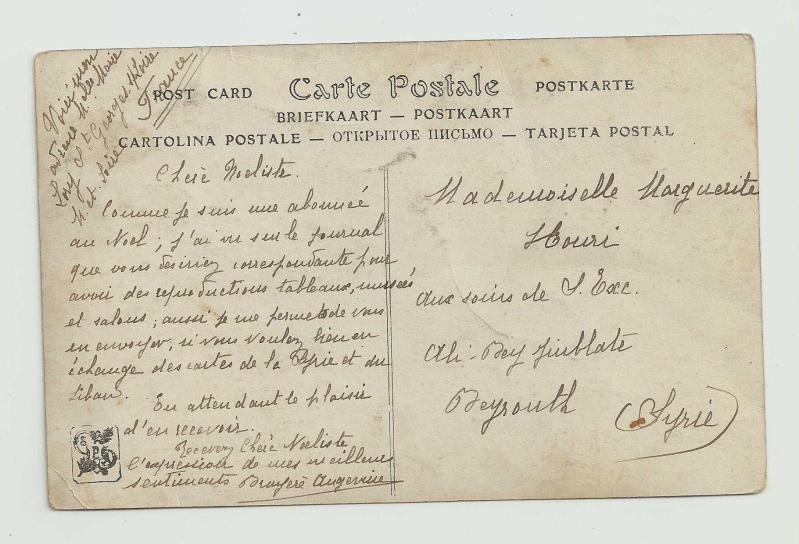 Voici mon
adresse Melle Marie
Lory St Georges s/ Loire
M. et Loire
France
POST CARD Carte Postale POSTKARTE
BRIEFKAART — POSTKAART
CARTOLINA POSTALE — ОТКРЫТОЕ ПИСЬМО — TARJETA POSTAL
Chère Noeliste.
Comme je suis une abonnée
au Noel; j'ai vu sur le journal
que vous désiriez correspondante pour
avoir des reproductions tableaux, musées
et salons; aussi je me permets de vous
en envoyer, si vous voulez bien en
échange des cartes de la Syrie et du
Liban.
En attendant le plaisir
d'en recevoir.
Recevez Chère Noeliste
l'expression de mes meilleurs
sentiments Bruyère Angevine
Mademoiselle Marguerite
Houri
aux soins de S. Exc.
Ali-Bey Jinblate
Beyrouth (Syrie)